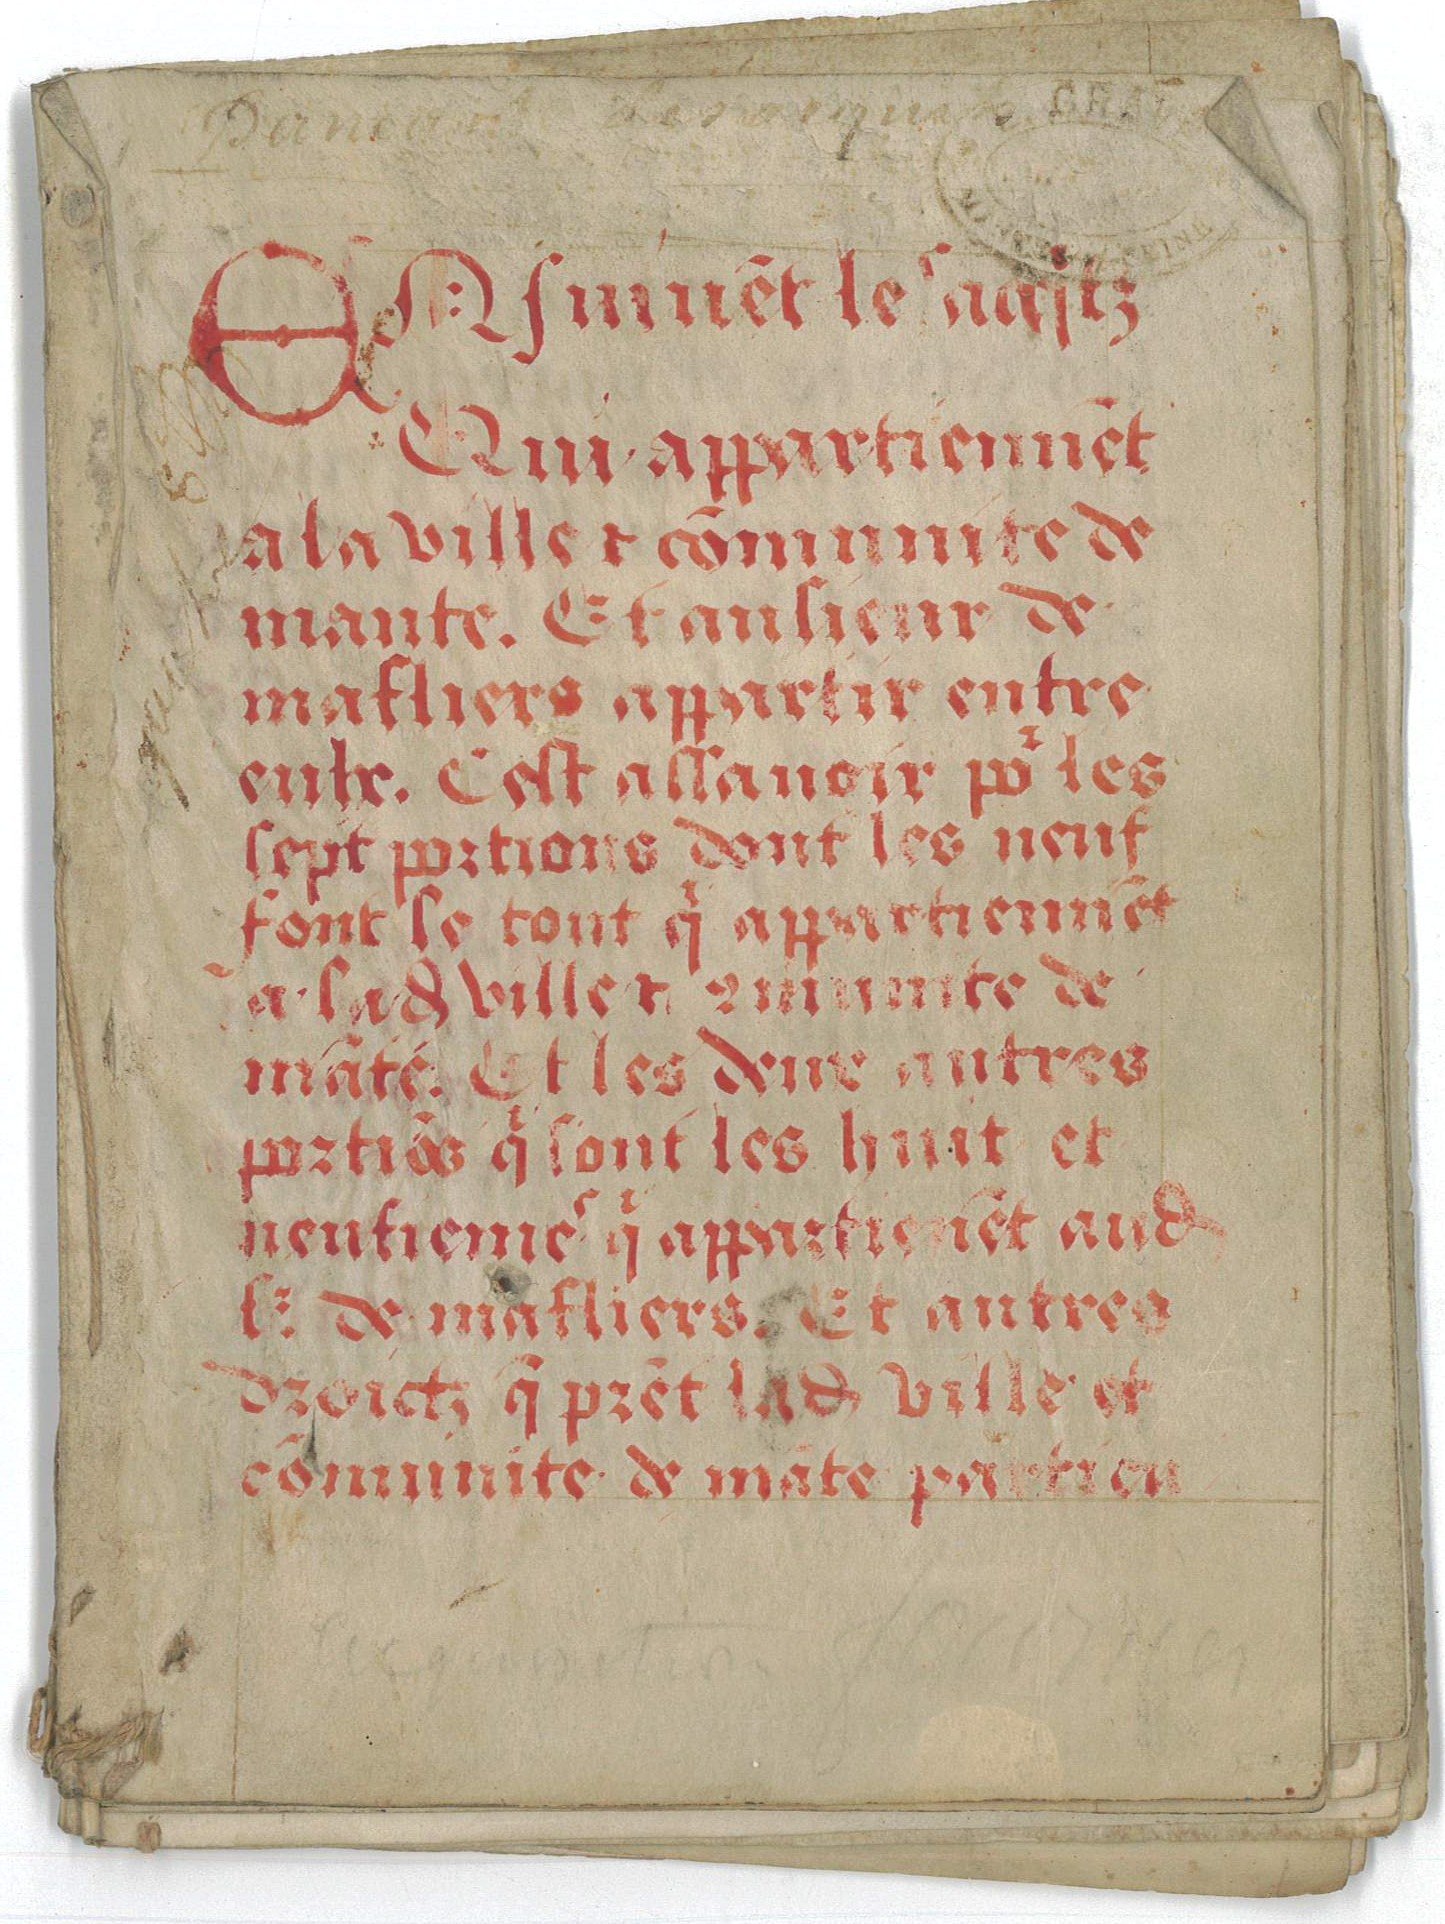 ENsuiuēt les acq̄stz
Qui appartiennēt
a la ville ⁊ cōmunite de
mante. Et au sieur de
mafliers appartir entre
eulx. Cest assauoir por les
sept portions dont les neuf
font le tout q̄ appartiennēt
a lad ville ⁊ ꝯmunite de
māte. Et les deux autres
portiōs qi sont les huit et
neufiemes qi appartienēt aud
sr de mafliers. Et autres
droictz q̄ prēt lad ville et
cōmunite de māte partien